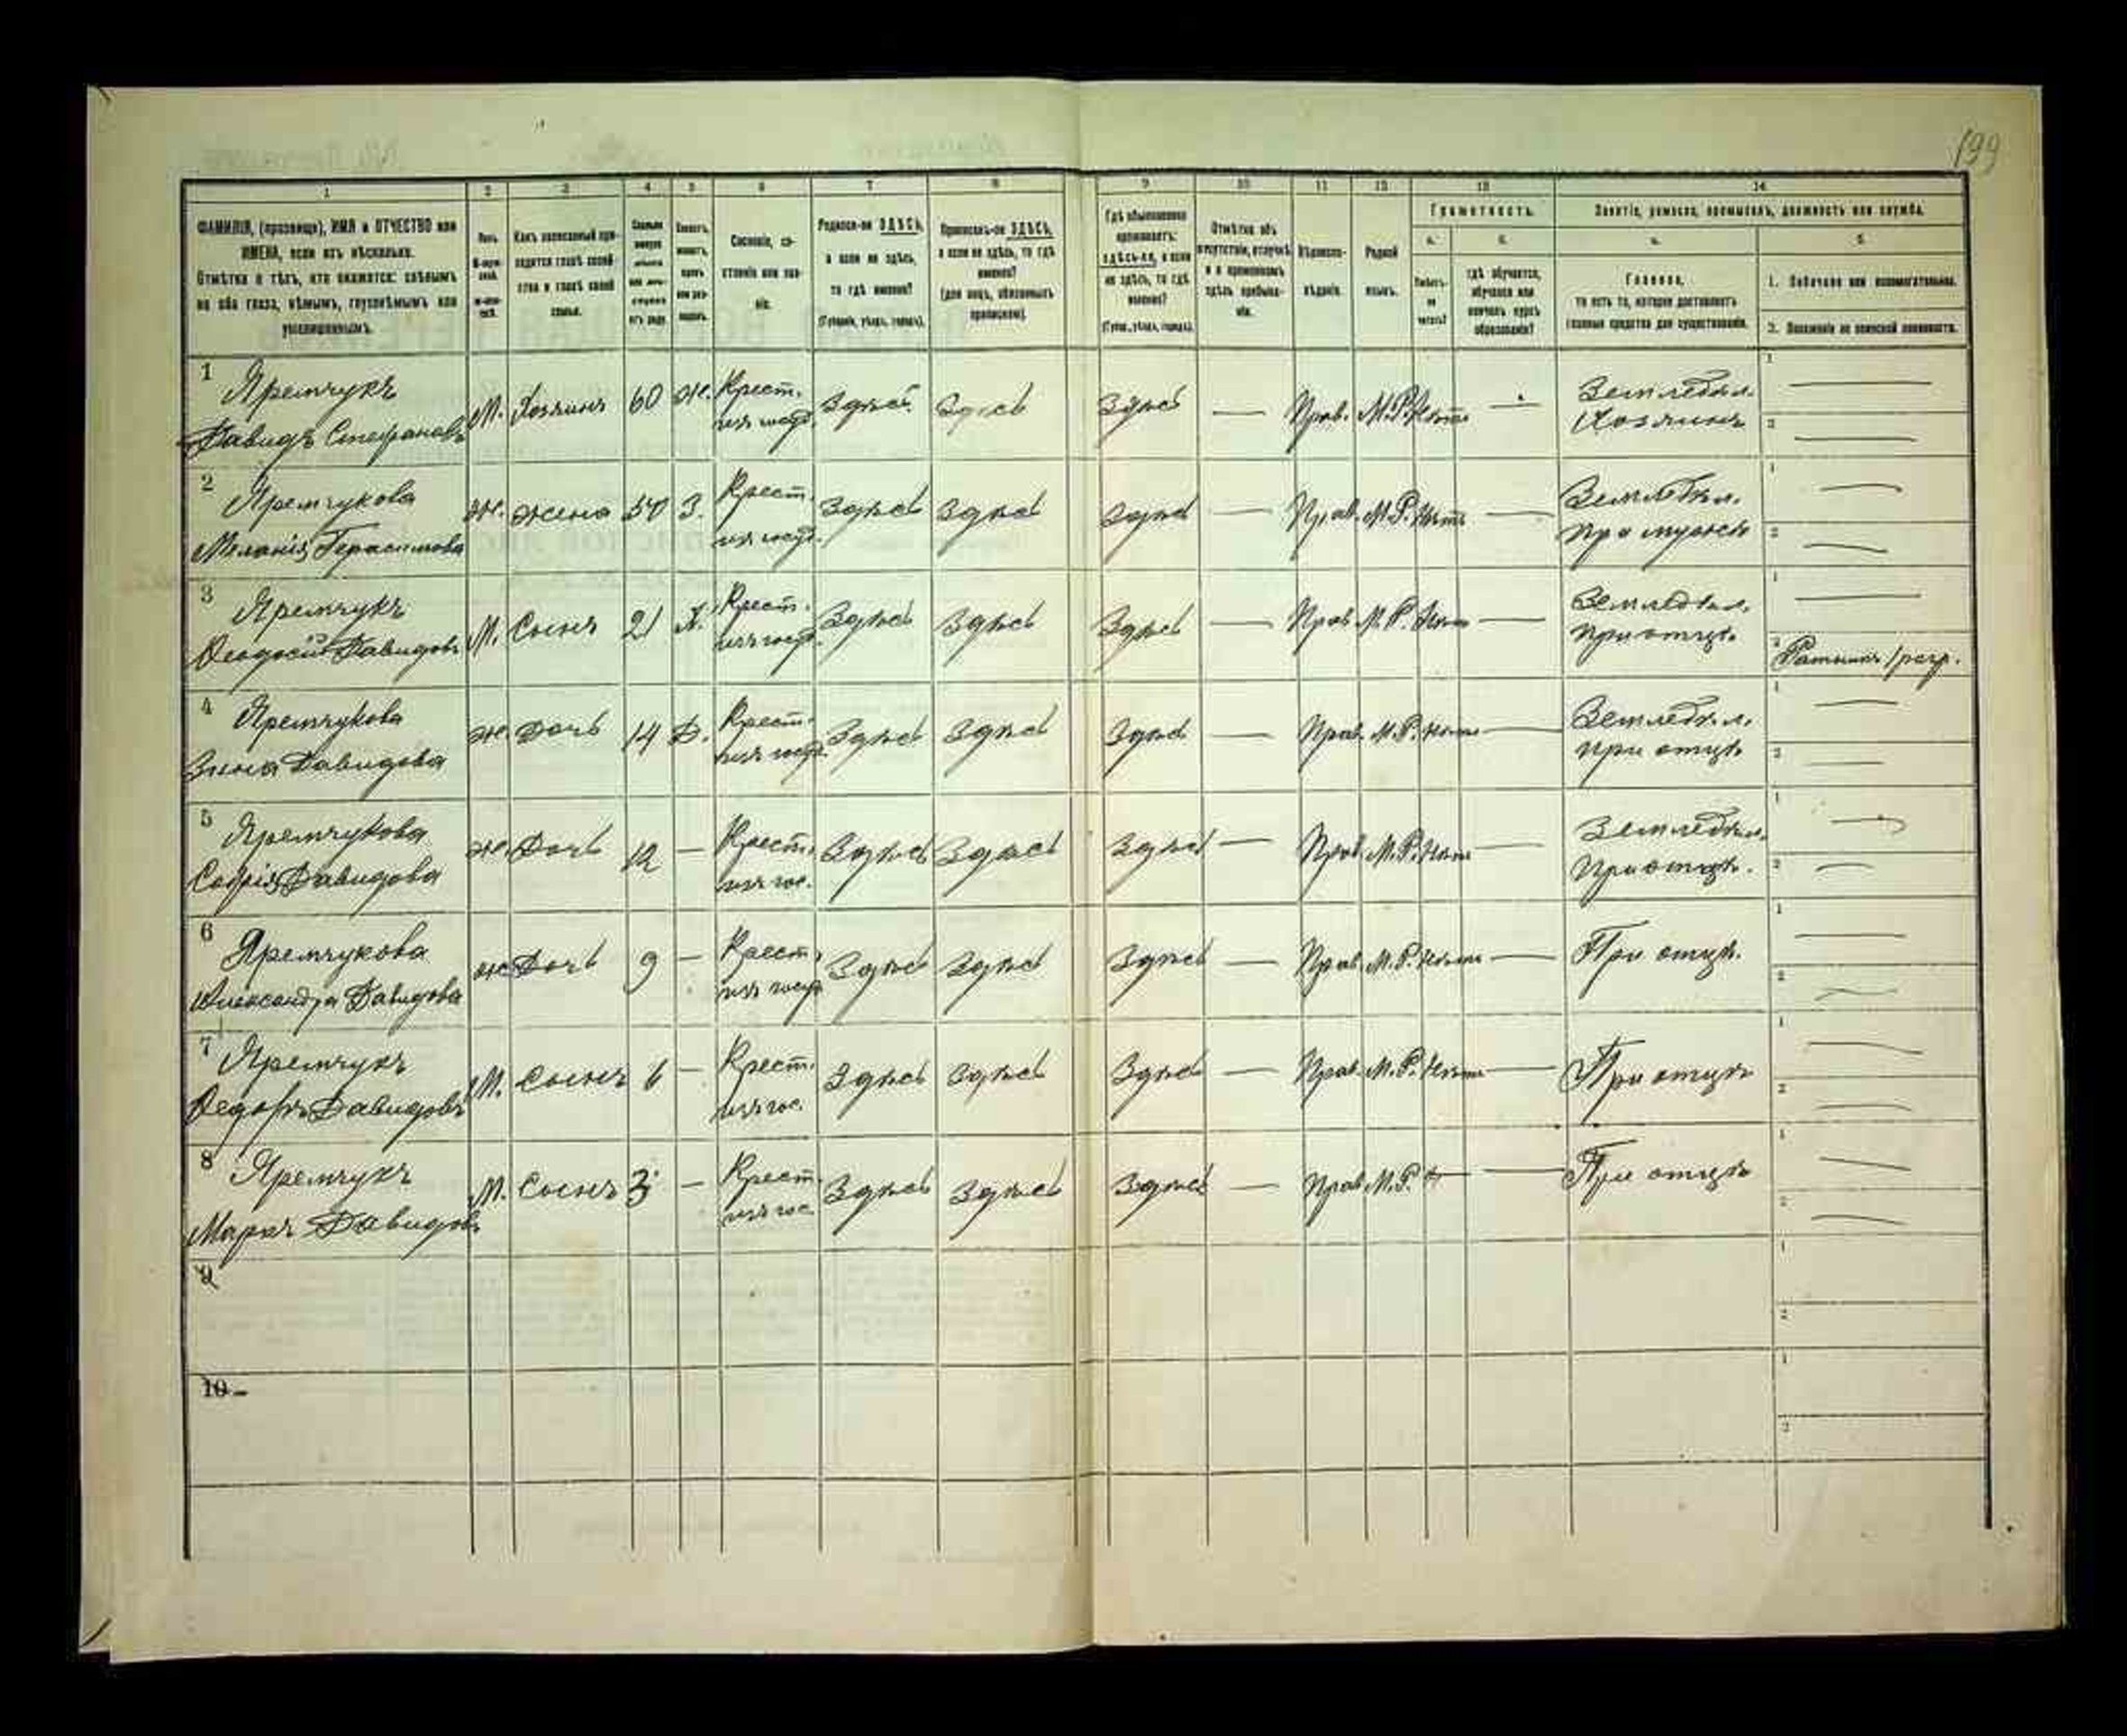 199
1 2 3 4 5 6 7 8 9 10 11 12 13 14
ФАМИЛІЯ, (прозвище), ИМЯ и ОТЧЕСТВО или
ИМЕНА, если ихъ нѣсколько.
Отмѣтка о тѣхъ, кто окажется: слѣпымъ
на оба глаза, нѣмымъ, глухонѣмымъ или
умалишеннымъ.
Какъ записанный при-
ходится главѣ хозяй-
ства и главѣ своей
семьи.
Сословіе, со-
стояніе или зва-
ніе.
Родился-ли ЗДѢСЬ,
а если не здѣсь,
то гдѣ именно?
(Губернія, уѣздъ, городъ).
Приписанъ-ли ЗДѢСЬ,
а если не здѣсь, то гдѣ
именно?
(для лицъ, обязанныхъ
припискою).
Гдѣ обыкновенно
проживаетъ:
ЗДѢСЬ-ли, а если
не здѣсь, то гдѣ
именно?
(Губер., уѣздъ, городъ).
Отмѣтка объ
отсутствіи, отлучкѣ
и о временномъ
здѣсь пребыва-
ніи.
Вѣроиспо-
вѣданіе.
Родной
языкъ.
Грамотность.
а. б.
Умѣетъ-
ли
читать?
гдѣ обучается,
обучался или
кончилъ курсъ
образованія?
Занятіе, ремесло, промыселъ, должность или служба.
а. б.
Главное,
то есть то, которое доставляетъ
главныя средства для существованія.
1. Побочное или вспомогательное.
2. Положеніе по воинской повинности.
1 Яремчукъ
Давидъ Стефановъ М. Хозяинъ 60 Ж. Крест. изъ госуд. Здѣсь Здѣсь Здѣсь — Прав. М.Р. Нѣтъ — Земледѣл. Хозяинъ
2 Яремчукова
Меланія Герасимова Ж. Жена 50 З. Крест. изъ госуд. Здѣсь Здѣсь Здѣсь — Прав. М.Р. Нѣтъ — Земледѣл. При мужѣ
3 Яремчукъ
Ѳеодосій Давидовъ М. Сынъ 21 Х. Крест. изъ госуд. Здѣсь Здѣсь Здѣсь — Прав. М.Р. Нѣтъ — Земледѣл. При отцѣ. Ратникъ 1 разр.
4 Яремчукова
Зина Давидова Ж. Дочь 14 Д. Крест. изъ госуд. Здѣсь Здѣсь Здѣсь — Прав. М.Р. Нѣтъ — Земледѣл. При отцѣ
5 Яремчукова
Софія Давидова Ж. Дочь 12 — Крест. изъ гос. Здѣсь Здѣсь Здѣсь — Прав. М.Р. Нѣтъ — Земледѣл. При отцѣ.
6 Яремчукова
Александра Давидова Ж. Дочь 9 — Крест. изъ госуд. Здѣсь Здѣсь Здѣсь — Прав. М.Р. Нѣтъ — При отцѣ.
7 Яремчукъ
Ѳедоръ Давидовъ М. Сынъ 6 — Крест. изъ гос. Здѣсь Здѣсь Здѣсь — Прав. М.Р. Нѣтъ — При отцѣ
8 Яремчукъ
Маркъ Давидов. М. Сынъ 3 — Крест. изъ гос Здѣсь Здѣсь Здѣсь — Прав. М.Р. — При отцѣ
9
10